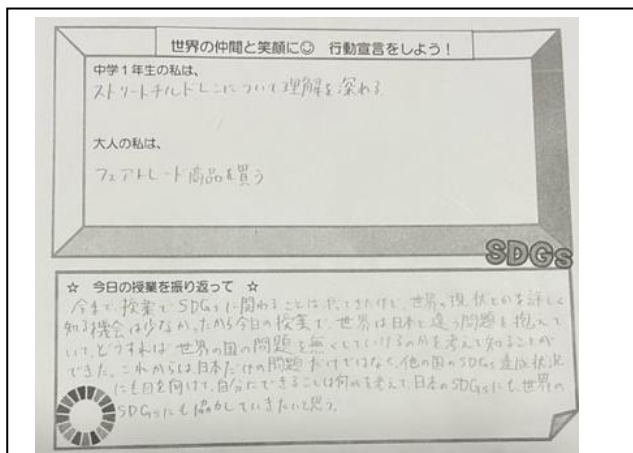 世界の仲間と笑顔に☺ 行動宣言をしよう！
中学１年生の私は、
ストリートチルドレンについて理解を深める
大人の私は、
フェアトレード商品を買う
SDGs
☆ 今日の授業を振り返って ☆
今まで授業でSDGsに関わることはやってきたけど、世界の現状とかを詳しく
知る機会は少なかったから今日の授業で、世界は日本と違う問題も抱えて
いて、どうすれば世界の国の問題を無くしていけるのかを考えて知ることが
できた。これからは日本だけの問題だけではなく、他の国のSDGs達成状況
にも目を向けて、自分にできることは何かを考えて、日本のSDGsにも、世界の
SDGsにも協力していきたいと思う。